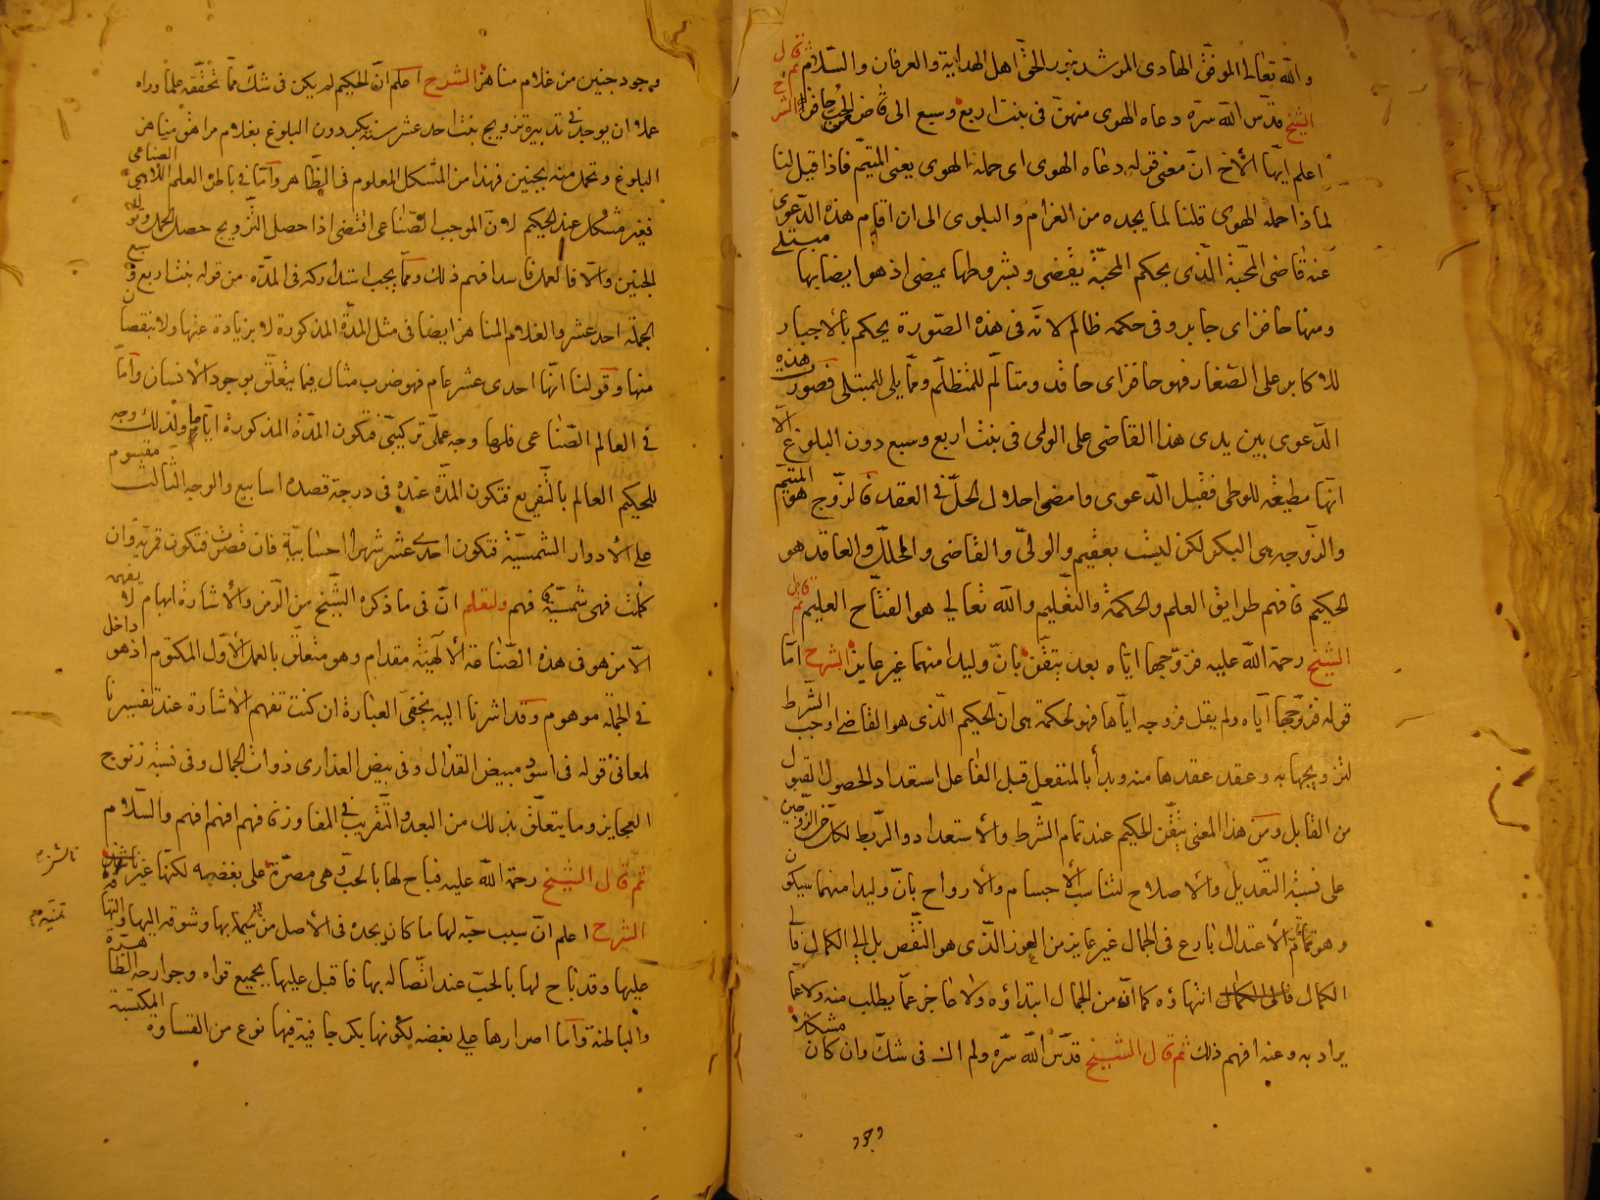 والله تعالى الموفق الهادي المرشد بنور الحق اهل الهداية والعرفان والسلام ثم قال
الشيخ قدس الله سره دعاه الهوى منهن في بنت اربع وسبع الى قاض الشرح
اعلم ايها الأخ ان معنى قوله دعاه الهوى اى حمله الهوى يعنى المتيم فاذا قيل لنا
لماذا حمله الهوى قلنا لما يجده من الغرام والبلوى الى ان اقام هذه الدعوى
عند قاضى المحبة الذى بحكم المحبة يقضى وبشروطها يمضى اذ هو ايضا بها مبتلى
ومنها حافزاى جابر وفى حكمه ظالم لانه فى هذه الصورة يحكم بالاجبار
للاكابر على الصغار فهو حافزاى حاقد ومتالم للمتظلم ومما يلى للمبتلى فصورة هذه
الدعوى بين يدى هذا القاضى على الولى فى بنت اربع وسبع دون البلوغ الا
انها مطيقه للوطى فقبل الدعوى وامضى احلال الحل فى العقد فالزوج هو المتيم
والزوجه هى البكر لكن ليست بعقيم والولى والقاضى والمحلل والعاقد هو
الحكيم فافهم طرايق العلم والحكمة والتعليم والله تعالى هو الفتاح العليم ثم قال
الشيخ رحمة الله عليه فزوجها اياه بعد تيقن بان وليدا منهما غير عايز الشرح اما
قوله فزوجها اياه ولم يقل فزوجه اياها فهو لحكمة هى ان الحكيم الذى هو القاضى اوجب الشرط
لتزويجها به وعقد عقدها منه وبدأ بالمنفعل قبل الفاعل استعداد لحصول القبول
من القابل ومن هذا المعنى تيقن الحكيم عند تمام الشرط والاستعداد والربط لكل من الزوجين
على نسبة التعديل والاصلاح لتناسب الأجسام والأرواح بان وليدا منهما سيكون
وهو تمام الأعتدال بارع فى الجمال غير عايز من العوز الذى هو النقص بل الى الكمال فالى
الكمال انتهاؤه كما انه من الجمال ابتداؤه ولا عاجز عما يطلب منه ولا عما
يراد به وعنه افهم ذلك ثم قال الشيخ قدس الله سره ولم اك فى شك وان كان مشكلا
وجود
وجود جنين من غلام مناهز الشرح اعلم ان الحكيم لم يكن فى شك مما تحققه علما وراه
عملا ان يوجد فى تدبيره تزويج بنت احد عشر سنة بكر دون البلوغ بغلام مراهق مناهز
البلوغ وتحمل منه بجنين فهذا من المشكل المعلوم فى الظاهر واما فى باطن العلم اللاهى الصناعى
فغير مشكل عند الحكيم لان الموجب الصناعى اقتضى اذا حصل التزويج حصل الحمل وتولد
الجنين والا فالعمل فاسد افهم ذلك ومما يجب استدراكه فى المدة من قوله بنت اربع وسبع
الجملة احد عشر والغلام المناهز ايضا فى مثل المدة المذكورة لا بزيادة عنها ولا بنقصان
منها وقولنا انها احدى عشر عام فهو ضرب مثال فيما يتعلق بوجود الأنسان واما
فى العالم الصناعى فلها وجه عملى تركيبى فتكون المدة المذكورة اياما ولذلك وجه
للحكيم العالم بالتفريع فتكون المدة عنده فى درجة قصده اسابيع والوجه الثالث مقسوم
على الأدوار الشمسية فتكون احدى عشر شهرا حسابية فان قصرت فتكون قمرية وان
كملت فهى شمسية فهم وليعلم ان فى ما ذكره الشيخ من الرمز والأشارة ابهام لا يفهمه
الا من هو فى هذه الصناعة الألهية مقدام وهو متعلق بالعمل الأول المكتوم اذ هو داخل
فى الجملة موهوم وقد اشرنا اليه بخفى العبارة ان كنت تفهم الأشارة عند تفسيرنا
لمعانى قوله فى اسود مبيض القذال وفى بيض العذارى ذوات الجمال وفى نسبة زنوج
العجايز وما يتعلق بذلك من البعد والتقريب فى المفاوز فافهم افهم افهم والسلام
ثم قال الشيخ رحمة الله عليه فباح لها بالحب وهى مصرة على بغضه لكنها غير ناشز
الشرح اعلم ان سبب حبه لها ما كان يجده فى الأصل من تيمة بها وشوقه اليها والتهابه
عليها وقد باح لها بالحب عند اتصاله بها فاقبل عليها بجميع قواه وجوارحه الظاهرة
والباطنة واما اصرارها على بغضه لكونها بكر جافية فيها نوع من القساوة المكتسبة
ناشز